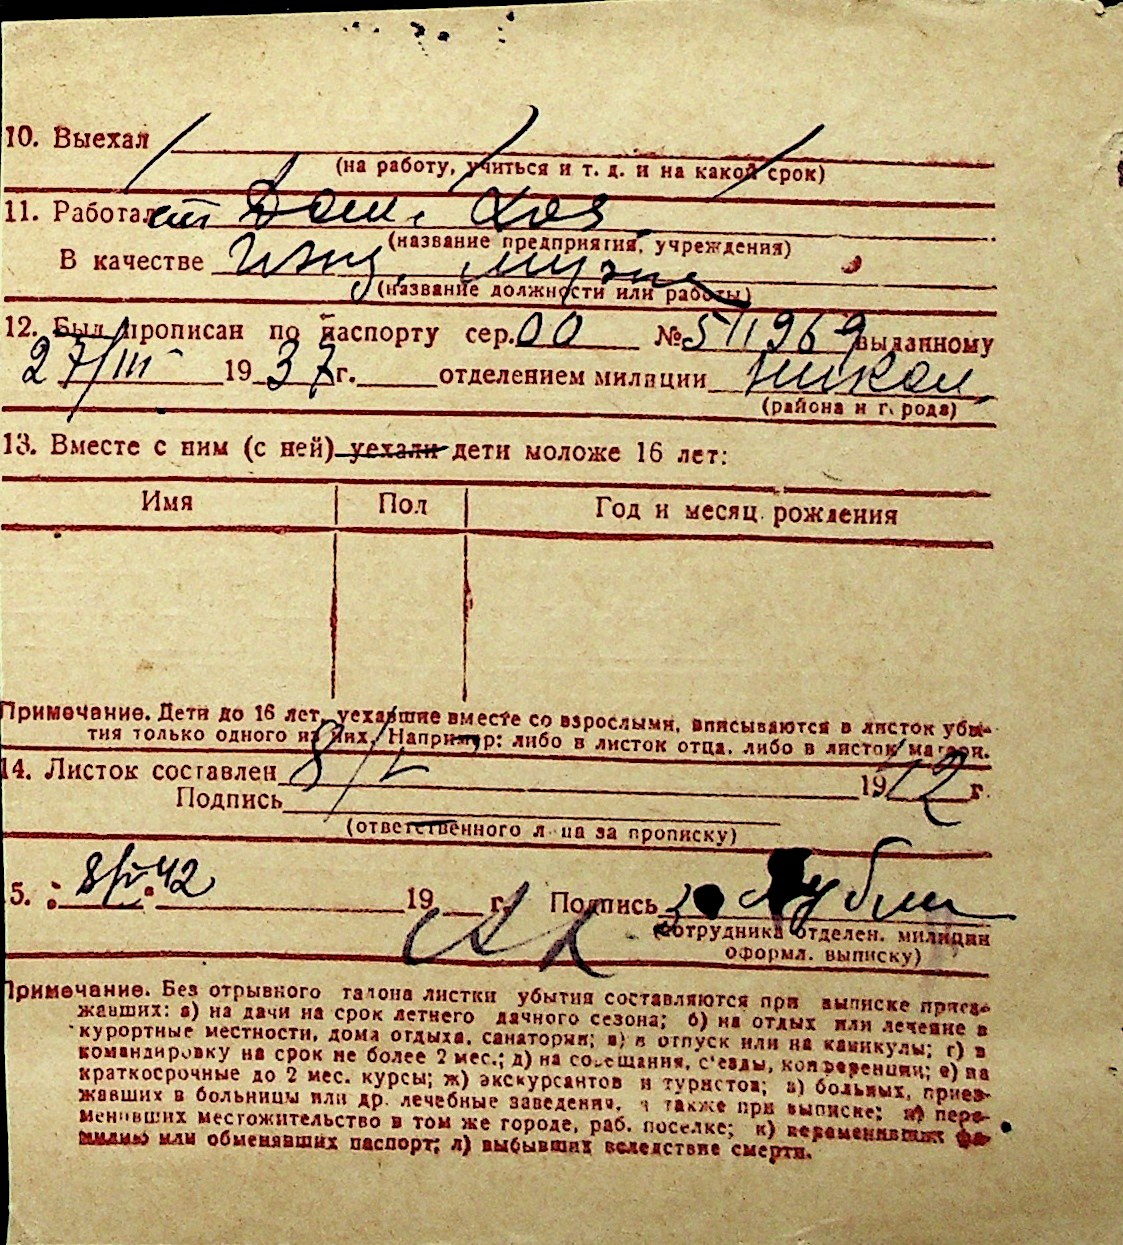 10. Выехал
(на работу, учиться и т. д. и на какой срок)
11. Работал Дом. Хоз.
(название предприятия, учреждения)
В качестве Ижд. мужа
(название должности или работы)
12. Был прописан по паспорту сер. 00 № 511969 выданному
27/III 1937 г. отделением милиции Никол.
(района и города)
13. Вместе с ним (с ней) уехали дети моложе 16 лет:
Имя Пол Год и месяц рождения
Примечание. Дети до 16 лет, уехавшие вместе со взрослыми, вписываются в листок убы-
тия только одного из них. Например: либо в листок отца, либо в листок матери.
14. Листок составлен 8/V 1942 г.
Подпись
(ответственного лица за прописку)
5. 8/V 42 19 г. Подпись
(сотрудника отделен. милиции
оформл. выписку)
Примечание. Без отрывного талона листки убытия составляются при выписке приез-
жавших: а) на дачи на срок летнего дачного сезона; б) на отдых или лечение в
курортные местности, дома отдыха, санатории; в) в отпуск или на каникулы; г) в
командировку на срок не более 2 мес.; д) на совещания, с'езды, конференции; е) на
краткосрочные до 2 мес. курсы; ж) экскурсантов и туристов; з) больных, приез-
жавших в больницы или др. лечебные заведения, а также при выписке; и) пере-
менивших местожительство в том же городе, раб. поселке; к) переменивших фа-
милию или обменявших паспорт; л) выбывших вследствие смерти.